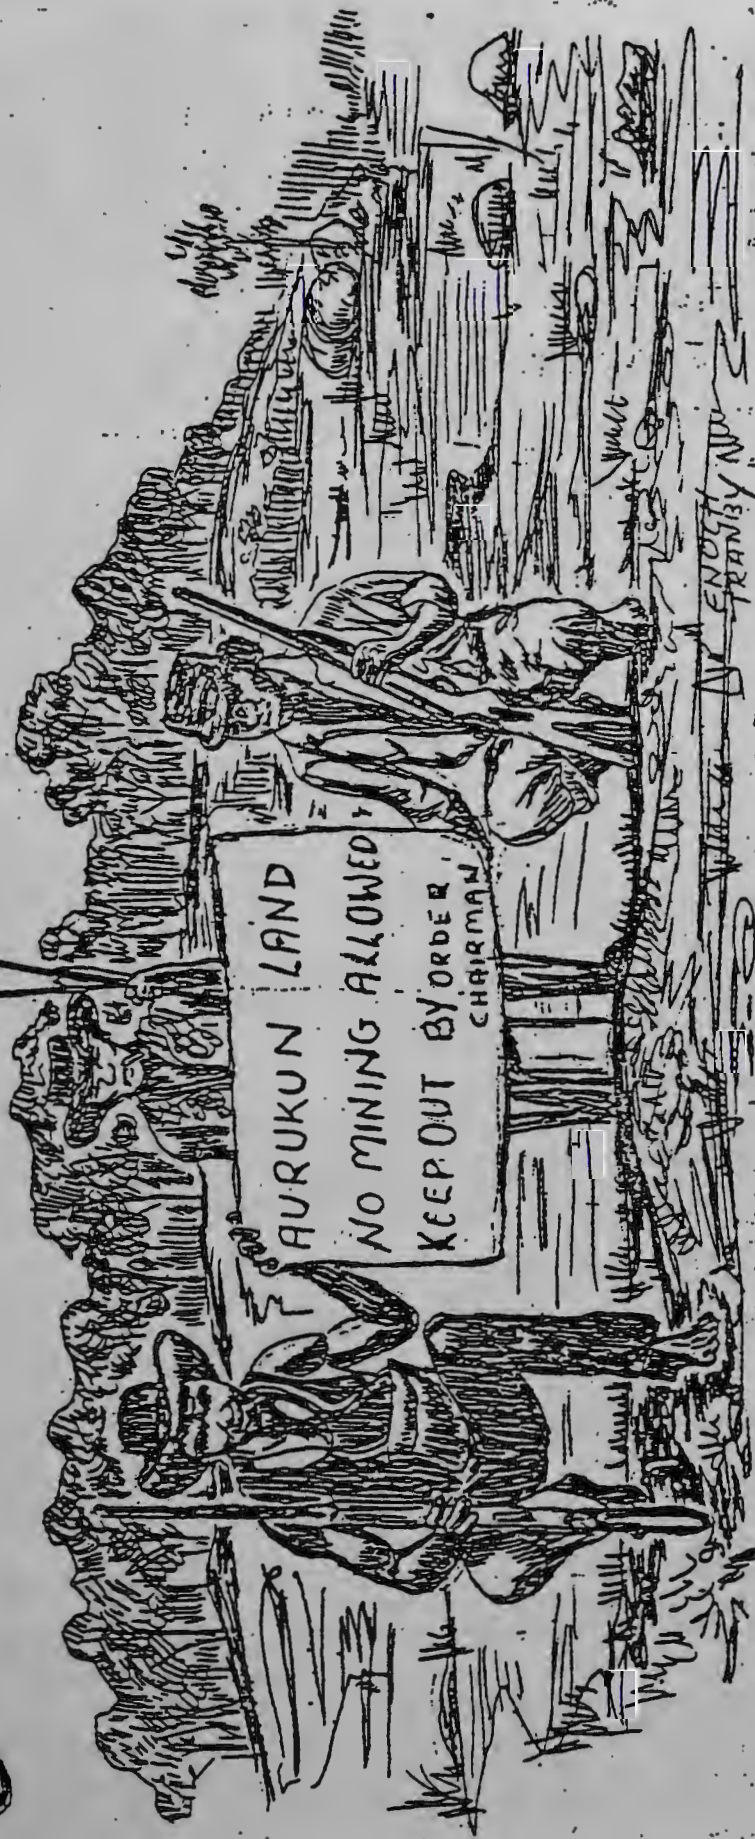 AURUKUN LAND
NO MINING ALLOWED,
KEEP OUT BY ORDER,
CHAIRMAN
ENOCH
TRANBY